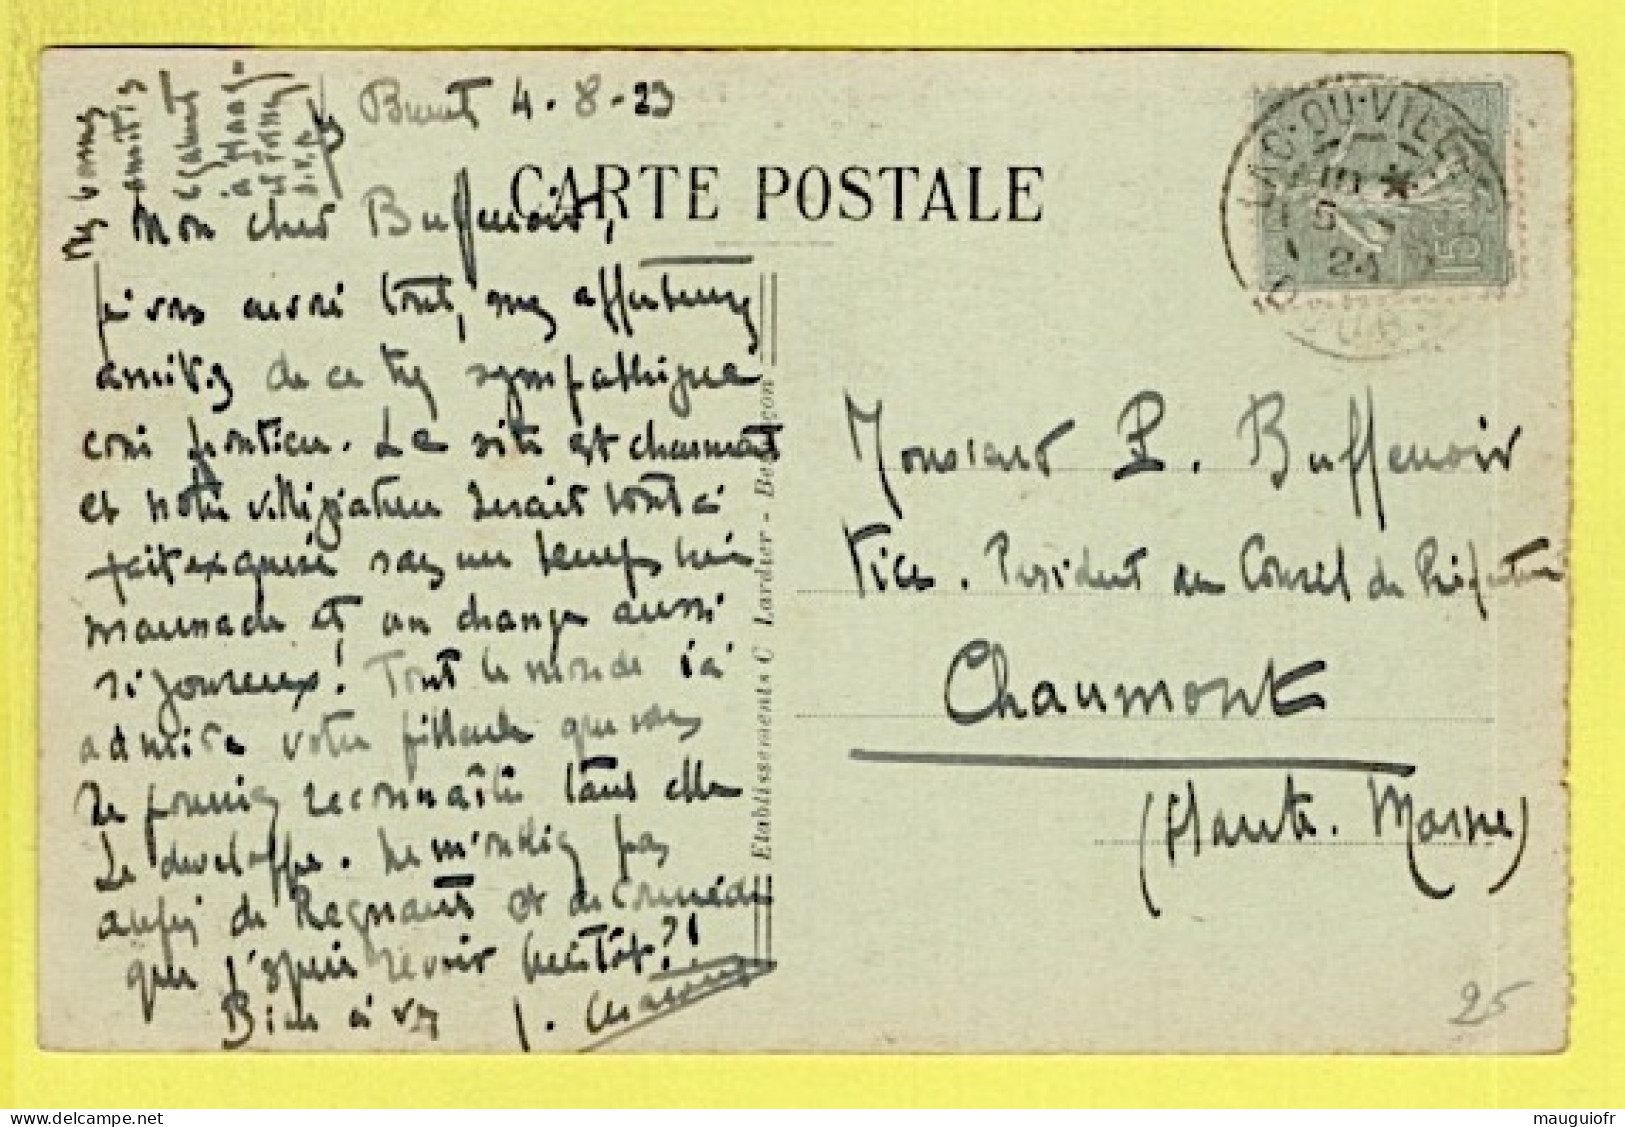 4-8-23
CARTE POSTALE
Mon cher Buffenoir,
amitiés de ce très sympathique
coin frontière. Le site est charmant
et notre villégiature serait tout à
fait exquise sans un temps bien
maussade et un change aussi
si joureux! Tout le monde ici
admire votre filleule que vous
ne pourriez reconnaître tant elle
se développe. Ne m'oubliez pas
auprès de Regnault et de
que j'espère revoir bientôt?!
Bien à vs
LAC-OU-VILLERS
24
DOUBS
15
Monsieur P. Buffenoir
Vice-Président au Conseil de Préfecture
Chaumont
(Haute-Marne)
Etablissements C Lardier - Besançon
25
mauguiofr